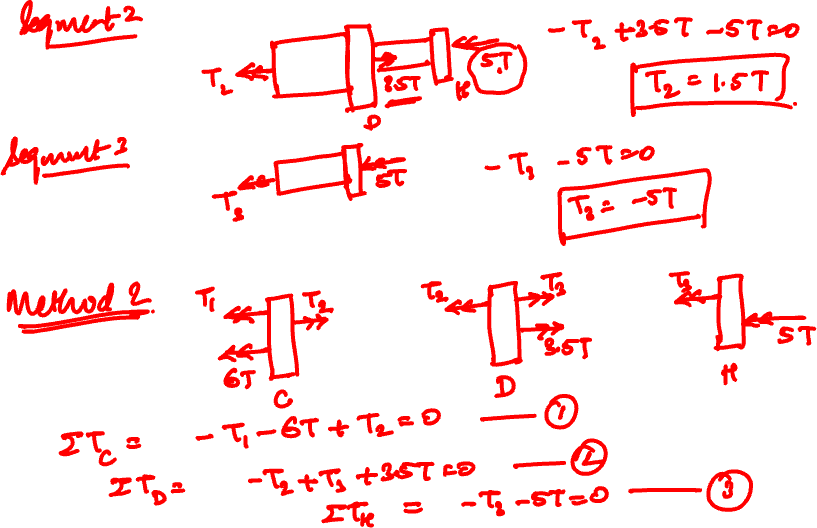 Segment 2
T2 3.5T 5T
D H
- T2 + 3.5T - 5T = 0
T2 = 1.5T
Segment 3
T3 5T
- T3 - 5T = 0
T3 = -5T
Method 2
T1 T2 6T C
T2 T3 3.5T D
T3 5T H
ΣTC = - T1 - 6T + T2 = 0 — 1
ΣTD = - T2 + T3 + 3.5T = 0 — 2
ΣTH = - T3 - 5T = 0 — 3